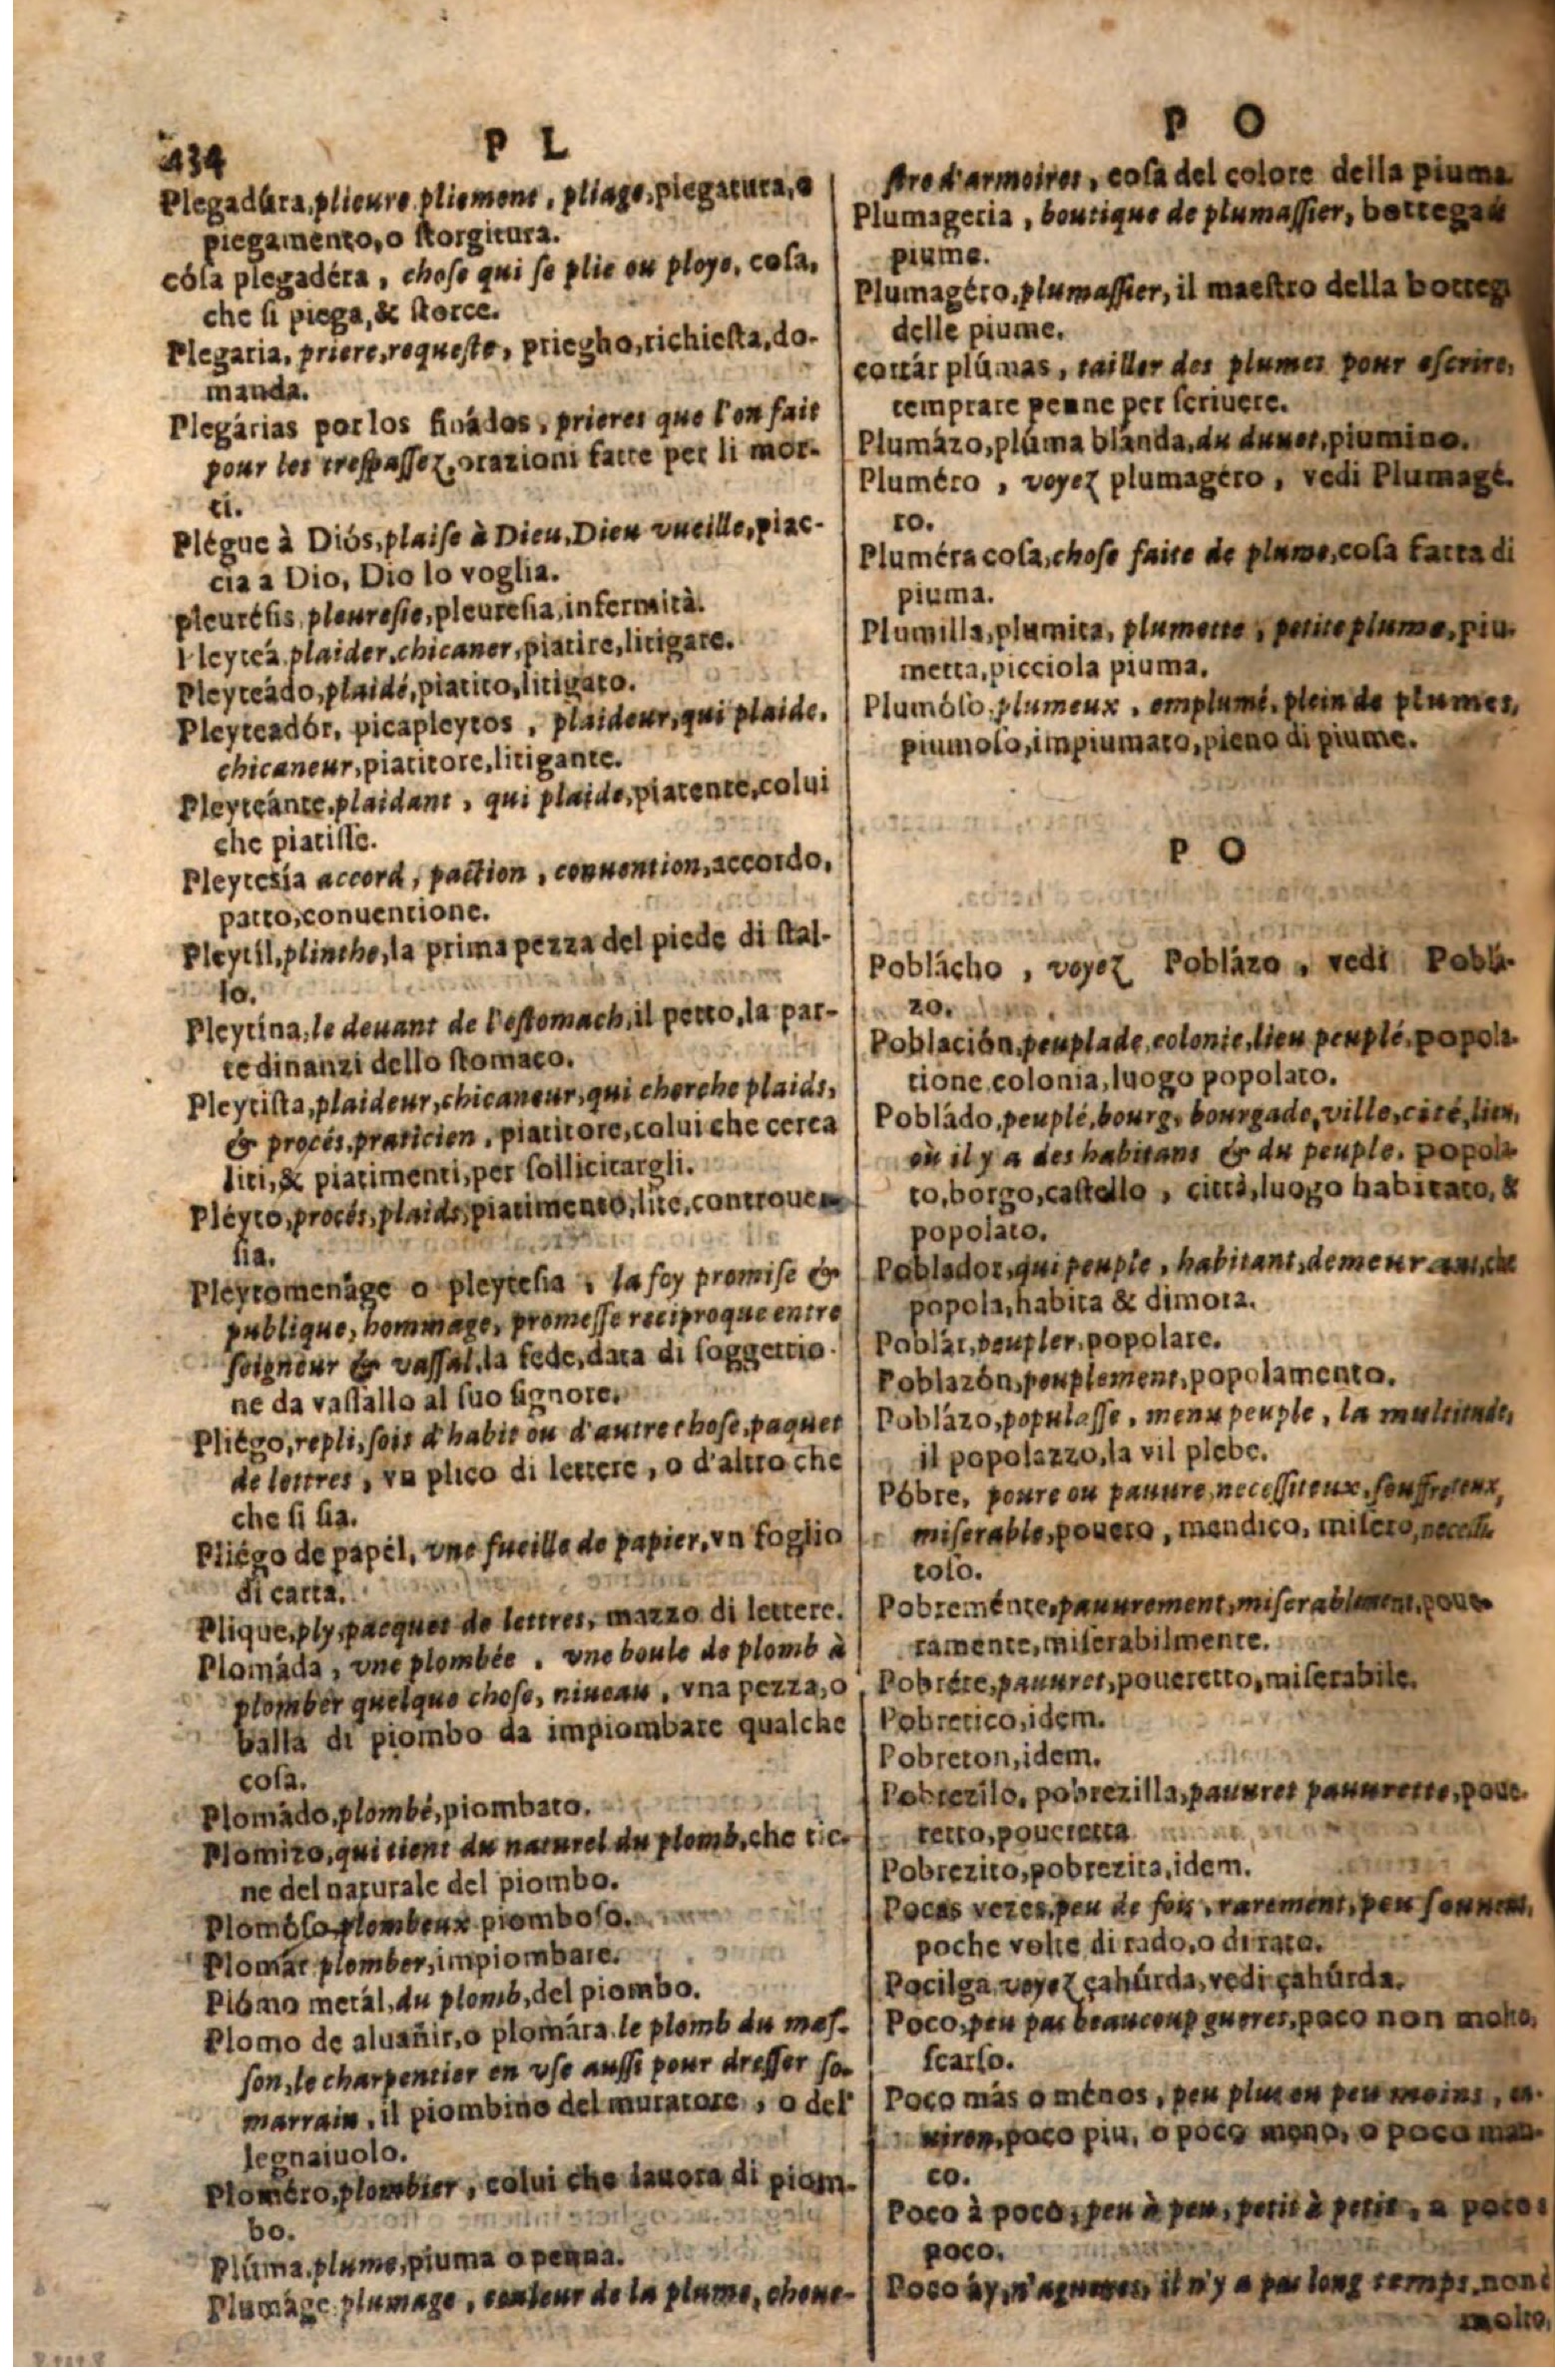 434
P L
Plegadúra, plieure pliement, pliage, piegatura, o
piegamento, o ſtorgitura.
cóſa plegadéra, choſe qui ſe plie ou ploye, coſa,
che ſi piega, & ſtorce.
Plegaria, priere, requeſte, priegho, richieſta, do-
manda.
Plegárias por los finádos, prieres que l'on fait
pour les treſpaſſez, orazioni fatte per li mor-
ti.
Plégue à Diós, plaiſe à Dieu, Dieu vueille, piac-
cia a Dio, Dio lo voglia.
pleuréſis, pleureſie, pleureſia, infermità.
Pleyteá plaider, chicaner, piatire, litigare.
Pleyteádo, plaidé, piatito, litigato.
Pleyteadór, picapleytos, plaideur, qui plaide,
chicaneur, piatitore, litigante.
Pleyteánte, plaidant, qui plaide, piatente, colui
che piatiſſe.
Pleyteſía accord, paction, conuention, accordo,
patto, conuentione.
Pleytíl, plinthe, la prima pezza del piede di ſtal-
lo.
Pleytína, le deuant de l'eſtomach, il petto, la par-
te dinanzi dello ſtomaco.
Pleytiſta, plaideur, chicaneur, qui cherche plaids,
& procés, praticien, piatitore, colui che cerca
liti, & piatimenti, per ſollicitargli.
Pléyto, procés, plaids, piatimento, lite, controuer-
ſia.
Pleytomenáge o pleyteſia, la foy promiſe &
publique, hommage, promeſſe reciproque entre
ſeigneur & vaſſal, la fede, data di ſoggettio-
ne da vaſſallo al ſuo ſignore.
Pliégo, repli, ſoit d'habit ou d'autre choſe, paquet
de lettres, vn plico di lettere, o d'altro che
che ſi ſia.
Pliégo de papél, vne fueille de papier, vn foglio
di carta.
Plique, ply, pacquet de lettres, mazzo di lettere.
Plomáda, vne plombée, vne boule de plomb à
plomber quelque choſe, niueau, vna pezza, o
balla di piombo da impiombare qualche
coſa.
Plomádo, plombé, piombato.
Plomizo, qui tient du naturel du plomb, che tie-
ne del naturale del piombo.
Plomóſo plombeux piomboſo.
Plomár plomber, impiombare.
Plómo metál, du plomb, del piombo.
Plomo de aluañir, o plomára le plomb du maſ-
ſon, le charpentier en vſe auſſi pour dreſſer ſo-
marrain, il piombino del muratore, o del
legnaiuolo.
Ploméro, plombier, colui che lauora di piom-
bo.
Plúma, plume, piuma o penna.
Plumáge plumage, couleur de la plume, cheue-
P O
ſtre d'armoires, coſa del colore della piuma.
Plumageria, boutique de plumaſſier, bottega
piume.
Plumagéro, plumaſſier, il maeſtro della botteg
delle piume.
cortár plúmas, tailler des plumes pour eſcrire,
temprare penne per ſcriuere.
Plumázo, plúma blánda, du duuet, piumino.
Pluméro, voyez plumagéro, vedi Plumagé-
ro.
Pluméra coſa, choſe faite de plume, coſa fatta di
piuma.
Plumilla, plumita, plumette, petite plume, piu-
metta, picciola piuma.
Plumóſo, plumeux, emplumé, plein de plumes,
piumoſo, impiumato, pieno di piume.
P O
Poblácho, voyez Poblázo, vedi Poblá-
zo.
Población, peuplade, colonie, lieu peuplé, popola-
tione colonia, luogo popolato.
Pobládo, peuplé, bourg, bourgade, ville, cité, lieu,
où il y a des habitans & du peuple, popola-
to, borgo, caſtello, città, luogo habitato, &
popolato.
Poblador, qui peuple, habitant, demeurant, che
popola, habita & dimora.
Poblár, peupler, popolare.
Poblazón, peuplement, popolamento.
Poblázo, populaſſe, menu peuple, la multitude,
il popolazzo, la vil plebe.
Póbre, poure ou pauure, neceſſiteux, ſouffreteux,
miſerable, pouero, mendico, miſero, neceſſi-
toſo.
Pobreménte, pauurement, miſerablement, poue-
ramente, miſerabilmente.
Pobréte, pauuret, poueretto, miſerabile.
Pobretico, idem.
Pobreton, idem.
Pobrezilo, pobrezilla, pauuret pauurette, poue-
retto, poueretta
Pobrezito, pobrezita, idem.
Pocas vezes, peu de fois, rarement, peu ſouuent,
poche volte di rado, o di raro.
Pocilga voyez çahúrda, vedi çahúrda.
Poco, peu pas beaucoup gueres, poco non molto,
ſcarſo.
Poco más o ménos, peu plus ou peu moins, en-
uiron, poco piu, o poco meno, o poco man-
co.
Poco à poco, peu à peu, petit à petit, a poco a
poco.
Poco áy, n'agueres, il n'y a pas long temps, non è
molto,